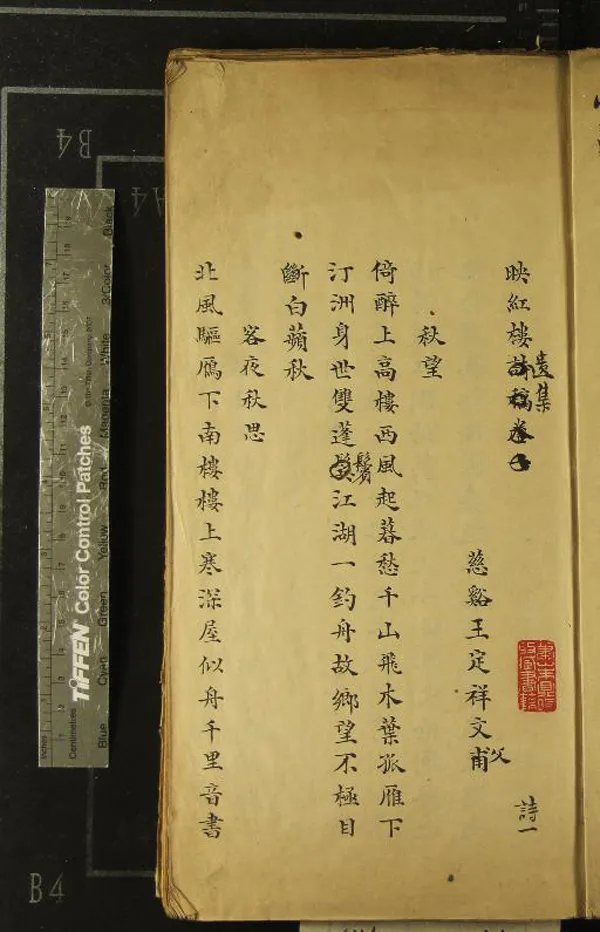 映紅樓遺集
詩一
慈谿王定祥文甫父
秋望
倚醉上高樓西風起暮愁千山飛木葉孤雁下
汀洲身世雙蓬鬢江湖一釣舟故鄉望不極目
斷白蘋秋
客夜秋思
北風驅鴈下南樓樓上寒深屋似舟千里音書
B4
A4
B4
TIFFEN Color Control Patches
© The Tiffen Company, 2007
Inches
Centimetres
Blue
Cyan
Green
Yellow
Red
Magenta
White
3/Color
Black